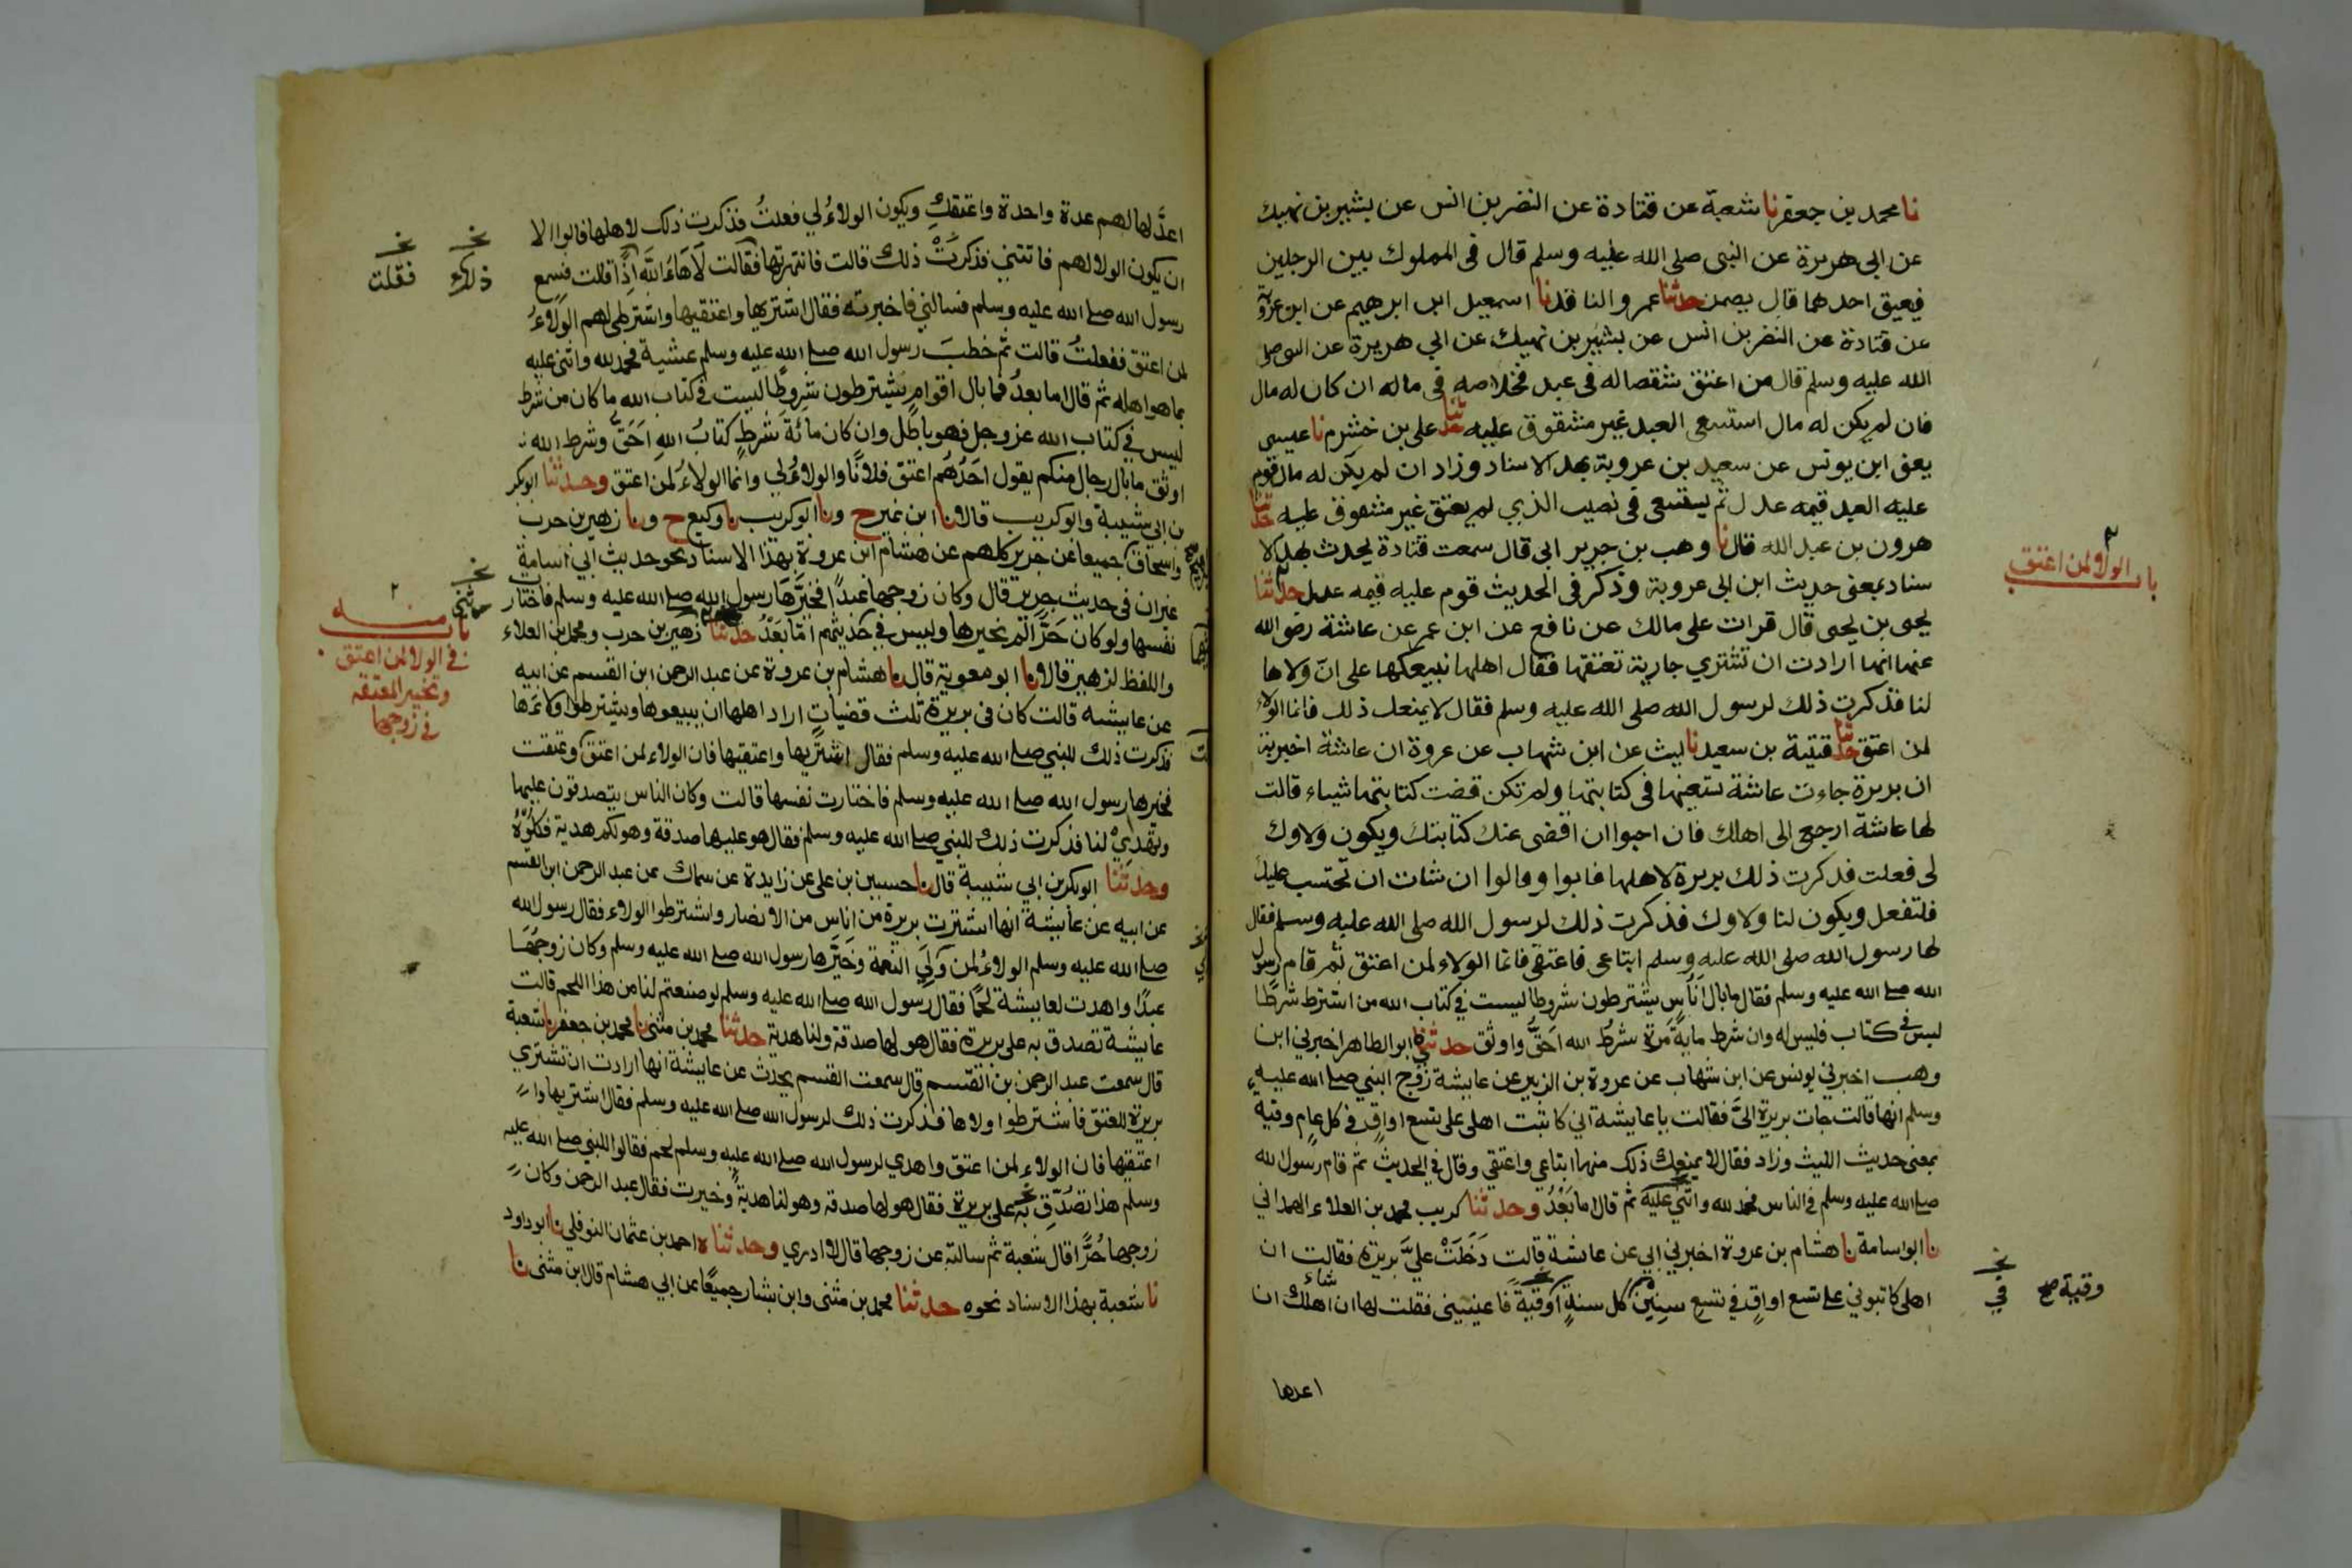 نا محمد بن جعفر نا شعبة عن قتادة عن النضر بن انس عن بشير بن نهيك
عن ابى هريرة عن النبى صلى الله عليه وسلم قال فى المملوك بين الرجلين
فيعتق احدهما قال يضمن حدثنا عمرو الناقد نا اسمعيل ابن ابرهيم عن ابن عروبة
عن قتادة عن النضر بن انس عن بشير بن نهيك عن ابي هريرة عن النبى صلى
الله عليه وسلم قال من اعتق شقصا له فى عبد فخلاصه فى ماله ان كان له مال
فان لم يكن له مال استسعى العبد غير مشقوق عليه حدثنا على بن خشرم نا عيسى
يعنى ابن يونس عن سعيد بن عروبة بهذ الاسناد وزاد ان لم يكن له مال قوم
عليه العبد قيمه عدل ثم يستسعى فى نصيب الذي لم يعتق غير مشقوق عليه حدثنا
هرون بن عبد الله قال نا وهب بن جرير ابى قال سمعت قتادة يحدث بهذ الا
سناد بمعنى حديث ابن ابى عروبة وذكر فى الحديث قوم عليه قيمه عدل حدثنا
باب الولاء لمن اعتق
يحيى بن يحيى قال قرات على مالك عن نافع عن ابن عمر عن عائشة رضى الله
عنها انها ارادت ان تشتري جارية تعتقها فقال اهلها نبيعكها على انّ ولاها
لنا فذكرت ذلك لرسول الله صلى الله عليه وسلم فقال لا يمنعك ذلك فانما الولاء
لمن اعتق حدثنا قتيبة بن سعيد نا ليث عن ابن شهاب عن عروة ان عائشة اخبرته
ان بريرة جاءت عائشة تستعينها فى كتابتها ولم تكن قضت كتابتها شياء قالت
لها عائشة ارجعى الى اهلك فان احبوا ان اقضى عنك كتابتك ويكون ولاوك
لى فعلت فذكرت ذلك بريرة لاهلها فابوا وقالوا ان شات ان تحتسب عليك
فلتفعل ويكون لنا ولاوك فذكرت ذلك لرسول الله صلى الله عليه وسلم فقال
لها رسول الله صلى الله عليه وسلم ابتاعى فاعتقى فانما الولاء لمن اعتق ثم قام رسول
الله صلے الله عليه وسلم فقال ما بال اناس يشترطون شروطا ليست في كتاب الله من اشترط شرطًا
ليس فى كتاب فليس له وان شرط مايةَ مَرّة شرطُ الله احَقُّ واوثق حدثني ابو الطاهر اخبرني ابن
وهب اخبرني يونس عن ابن شهاب عن عروة بن الزبير عن عايشة زوج النبي صلے الله عليه
وسلم انها قالت جات بريرة الىَّ فقالت يا عايشة اني كاتبت اهلى على تسع اواقٍ في كل عام وقية
بمعنى حديث الليث وزاد فقال لا يمنعك ذلك منها ابتاعي واعتقي وقال في الحديث ثم قام رسول الله
صلے الله عليه وسلم في الناس فحمد لله واثنى عليه ثم قال اما بَعْدُ وحدثنا كريب محمد بن العلاء الهمداني
نا ابو اسامة نا هشام بن عروة اخبرني ابي عن عائشة قالت دَخَلَتْ عليَّ بريرة فقالت ان
اهلى كاتبوني على تسع اواقٍ في تسع سِنِينَ كل سنةٍ اَوقيةً فاعينينى فقلت لها ان شاء اهلك ان
نخـ في
وقية صح
اعدها
اعدَّ لها لهم عدة واحدة واعتقكِ ويكون الولاءُ لي فعلتُ فذكرت ذلك لاهلها فابوا الا
ان يكون الولا لهم فاتتني فذكرَتْ ذلك قالت فانتهرتها فقالت لَا هَاءَ اللهَ اِذًا قالت فسمع
نخـ ذلك
نخـ فقلت
رسول الله صلے الله عليه وسلم فسالني فاخبرته فقال اشتريها واعتقيها واشترطى لهم الوَلاءُ
لمن اعتق ففعلتُ قالت ثم خطبَ رسول الله صلے الله عليه وسلم عشية فحمد لله واثنى عليه
بما هو اهله ثم قال اما بعدُ فما بال اقوامٍ يشترطون شروطًا ليست في كتاب الله ما كان من شرط
ليس في كتاب الله عز وجل فهو باطل وان كان مائة شرطٍ كتابُ اللهِ اَحَقُّ وشرط الله
اوثق ما بال رجال منكم يقول احَدُهُم اعتق فلانًا والولاءُ لي وانما الولاءُ لمن اعتق وحدثنا ابو بكر
بن ابي شيبة وابو كريب قالا نا ابن نمير ح ونا ابو كريب نا وكيع ح ونا زهير بن حرب
واسحاق جميعا عن جرير كلهم عن هشام ابن عروة بهذا الاسناد نحو حديث ابي اسامة
غير ان فى حديث جرير قال وكان زوجها عَبدًا فخيَّرها رسول الله صلے الله عليه وسلم فاختارت
نفسها ولو كان حُرًّا لم يخيرها وليس في حديثهم امّا بَعْدُ حدثنا زهير بن حرب ومحمد بن العلاء
باب منه
في الولا لمن اعتق
وتخيير المعتقه
في زوجها
واللفظ لزهير قالا نا ابو معوية قال نا هشام بن عروة عن عبد الرحمن ابن القسم عن ابيه
عن عايشه قالت كان فى بريرة ثلث قضيات اراد اهلها ان يبيعوها ويشترطوا ولاءَها
فذكرت ذلك للنبي صلے الله عليه وسلم فقال اشتريها واعتقيها فان الولاء لمن اعتق وعتقت
فخيرها رسول الله صلے الله عليه وسلم فاختارت نفسها قالت وكان الناس يتصدقون عليها
وتهديْ لنا فذكرت ذلك للنبي صلے الله عليه وسلم فقال هو عليها صدقة وهو لكم هدية فكلوُهُ
وحدثنا ابو بكر بن ابي شيبة قال نا حسين بن على عن زايدة عن سماك عن عبد الرحمن ابن القسم
عن ابيه عن عايشة انها اشترت بريرة من اناس من الانصار واشترطوا الولاء فقال رسول الله
صلے الله عليه وسلم الولاءُ لمن وَلِيَ النعمة وخَيَّرها رسول الله صلے الله عليه وسلم وكان زوجُهَا
عبدًا واهدت لعايشة لحمًا فقال رسول الله صلے الله عليه وسلم لو صنعتم لنا من هذا اللحم قالت
عايشة تصدق به على بريرة فقال هو لها صدقة ولنا هدية حدثنا محمد بن مثنى نا محمد بن جعفر نا شعبة
قال سمعت عبد الرحمن بن القسم قال سمعت القسم يحدث عن عايشة انها ارادت ان تشتري
بريرة للعتق فاشترطوا ولاها فذكرت ذلك لرسول الله صلے الله عليه وسلم فقال اشتريها وا
اعتقيها فان الولاء لمن اعتق واهدي لرسول الله صلے الله عليه وسلم لحم فقالوا للنبي صلے الله عليه
وسلم هذا تصُدّق به على بريرة فقال هو لها صدقه وهو لنا هدية وخيرت فقال عبد الرحمن وكان
زوجها حُرًّا قال شعبة ثم سالته عن زوجها قال لا ادري وحدثناه احمد بن عثمان النوفلي نا ابو داود
نا شعبة بهذا الاسناد نحوه حدثنا محمد بن مثنى وابن بشار جميعًا عن ابي هشام قال ابن مثنى نا